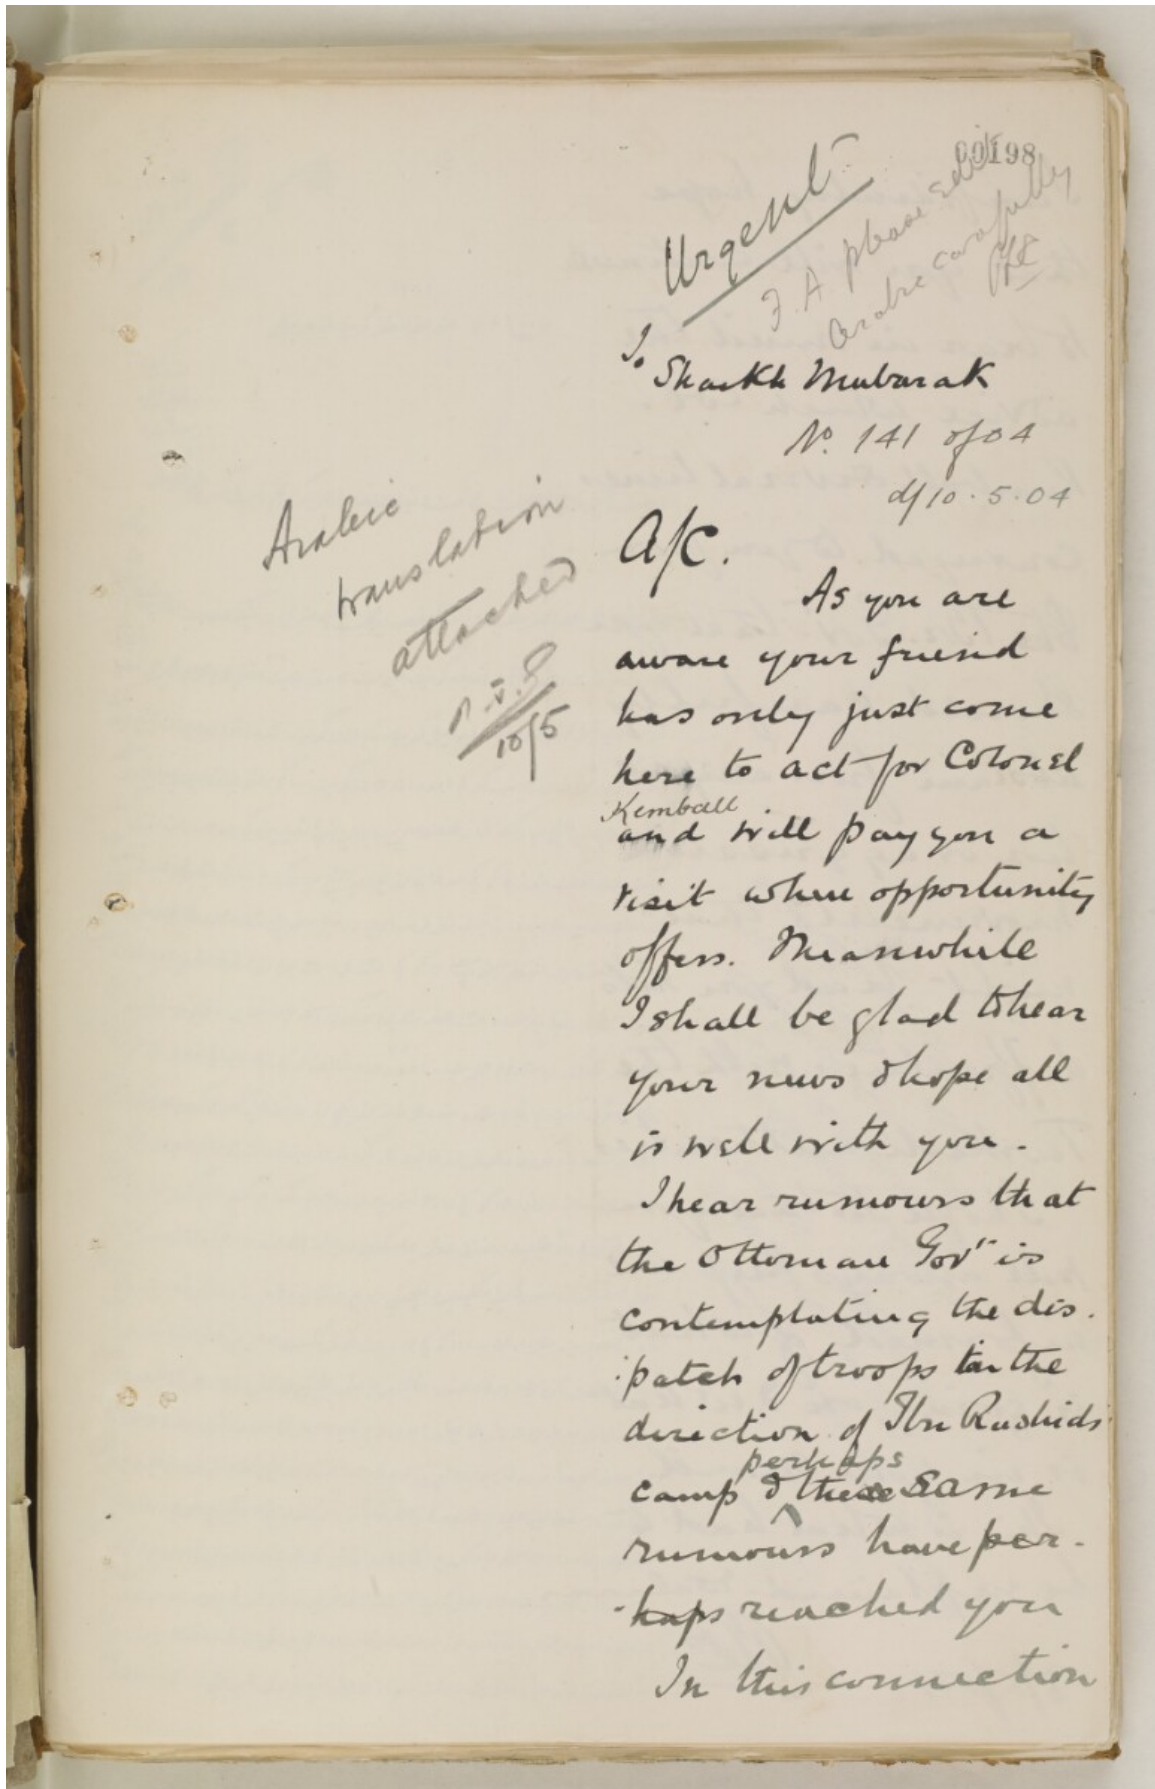 00198
Urgent
F. A please edit
Arabic carefully
To
Shaikh Mubarak
No. 141 of 04
d/10.5.04
Arabic
translation
attached
10/5
A/C.
As you are
aware your friend
has only just come
here to act for Colonel
Kemball
and will pay you a
visit when opportunity
offers. Meanwhile
I shall be glad to hear
your news & hope all
is well with you.
I hear rumours that
the Ottoman Govt is
contemplating the dis.
:patch of troops in the
direction of Ibn Rashids
perhaps
camp & these same
rumours have per-
-haps reached you
In this connection